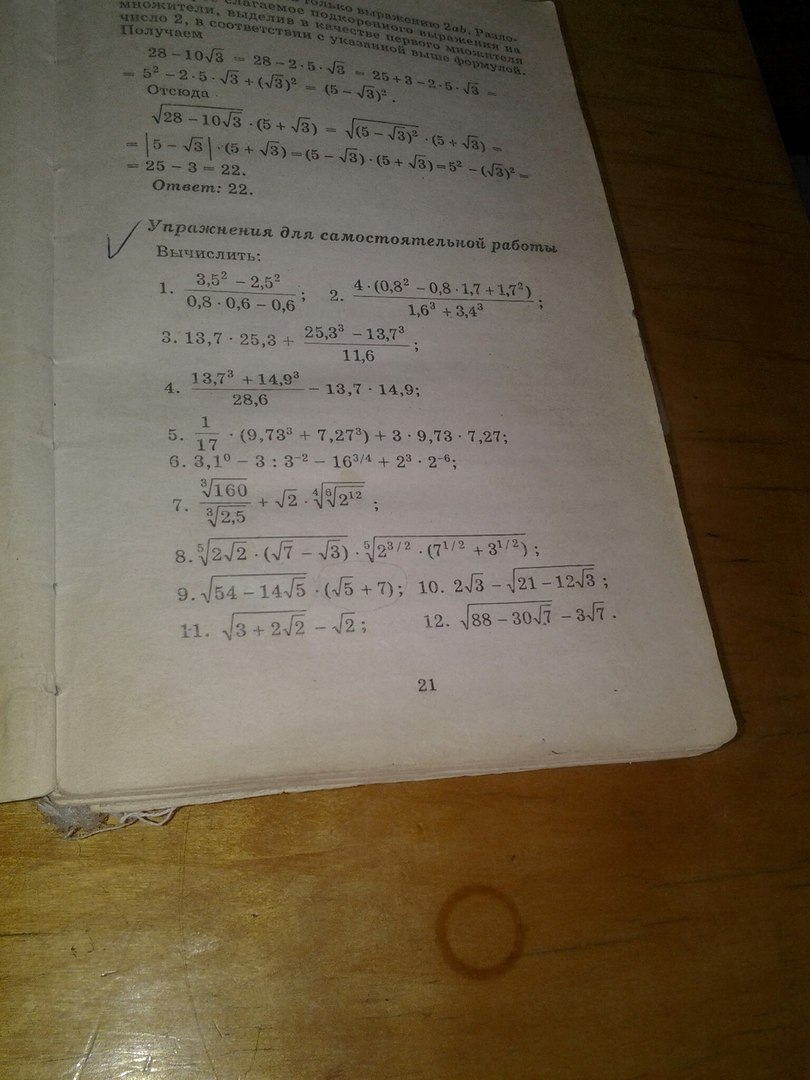 слагаемое только выражению 2ab. Разло-
подкоренного выражения на
множители, выделив в качестве первого множителя
число 2, в соответствии с указанной выше формулой.
Получаем
28 − 10√3 = 28 − 2 · 5 · √3 = 25 + 3 − 2 · 5 · √3 =
= 5² − 2 · 5 · √3 + (√3)² = (5 − √3)².
Отсюда
√(28 − 10√3) · (5 + √3) = √((5 − √3)²) · (5 + √3) =
= |5 − √3| · (5 + √3) = (5 − √3) · (5 + √3) = 5² − (√3)² =
= 25 − 3 = 22.
Ответ: 22.
Упражнения для самостоятельной работы
Вычислить:
1. (3,5² − 2,5²)/(0,8 · 0,6 − 0,6); 2. (4 · (0,8² − 0,8 · 1,7 + 1,7²))/(1,6³ + 3,4³);
3. 13,7 · 25,3 + (25,3³ − 13,7³)/(11,6);
4. (13,7³ + 14,9³)/(28,6) − 13,7 · 14,9;
5. 1/17 · (9,73³ + 7,27³) + 3 · 9,73 · 7,27;
6. 3,1⁰ − 3 : 3⁻² − 16^(3/4) + 2³ · 2⁻⁶;
7. ∛160/∛2,5 + √2 · ⁴√(⁶√(2¹²)) ;
8. ⁵√(2√2 · (√7 − √3)) · ⁵√(2^(3/2) · (7^(1/2) + 3^(1/2))) ;
9. √(54 − 14√5) · (√5 + 7); 10. 2√3 − √(21 − 12√3) ;
11. √(3 + 2√2) − √2 ; 12. √(88 − 30√7) − 3√7 .
21